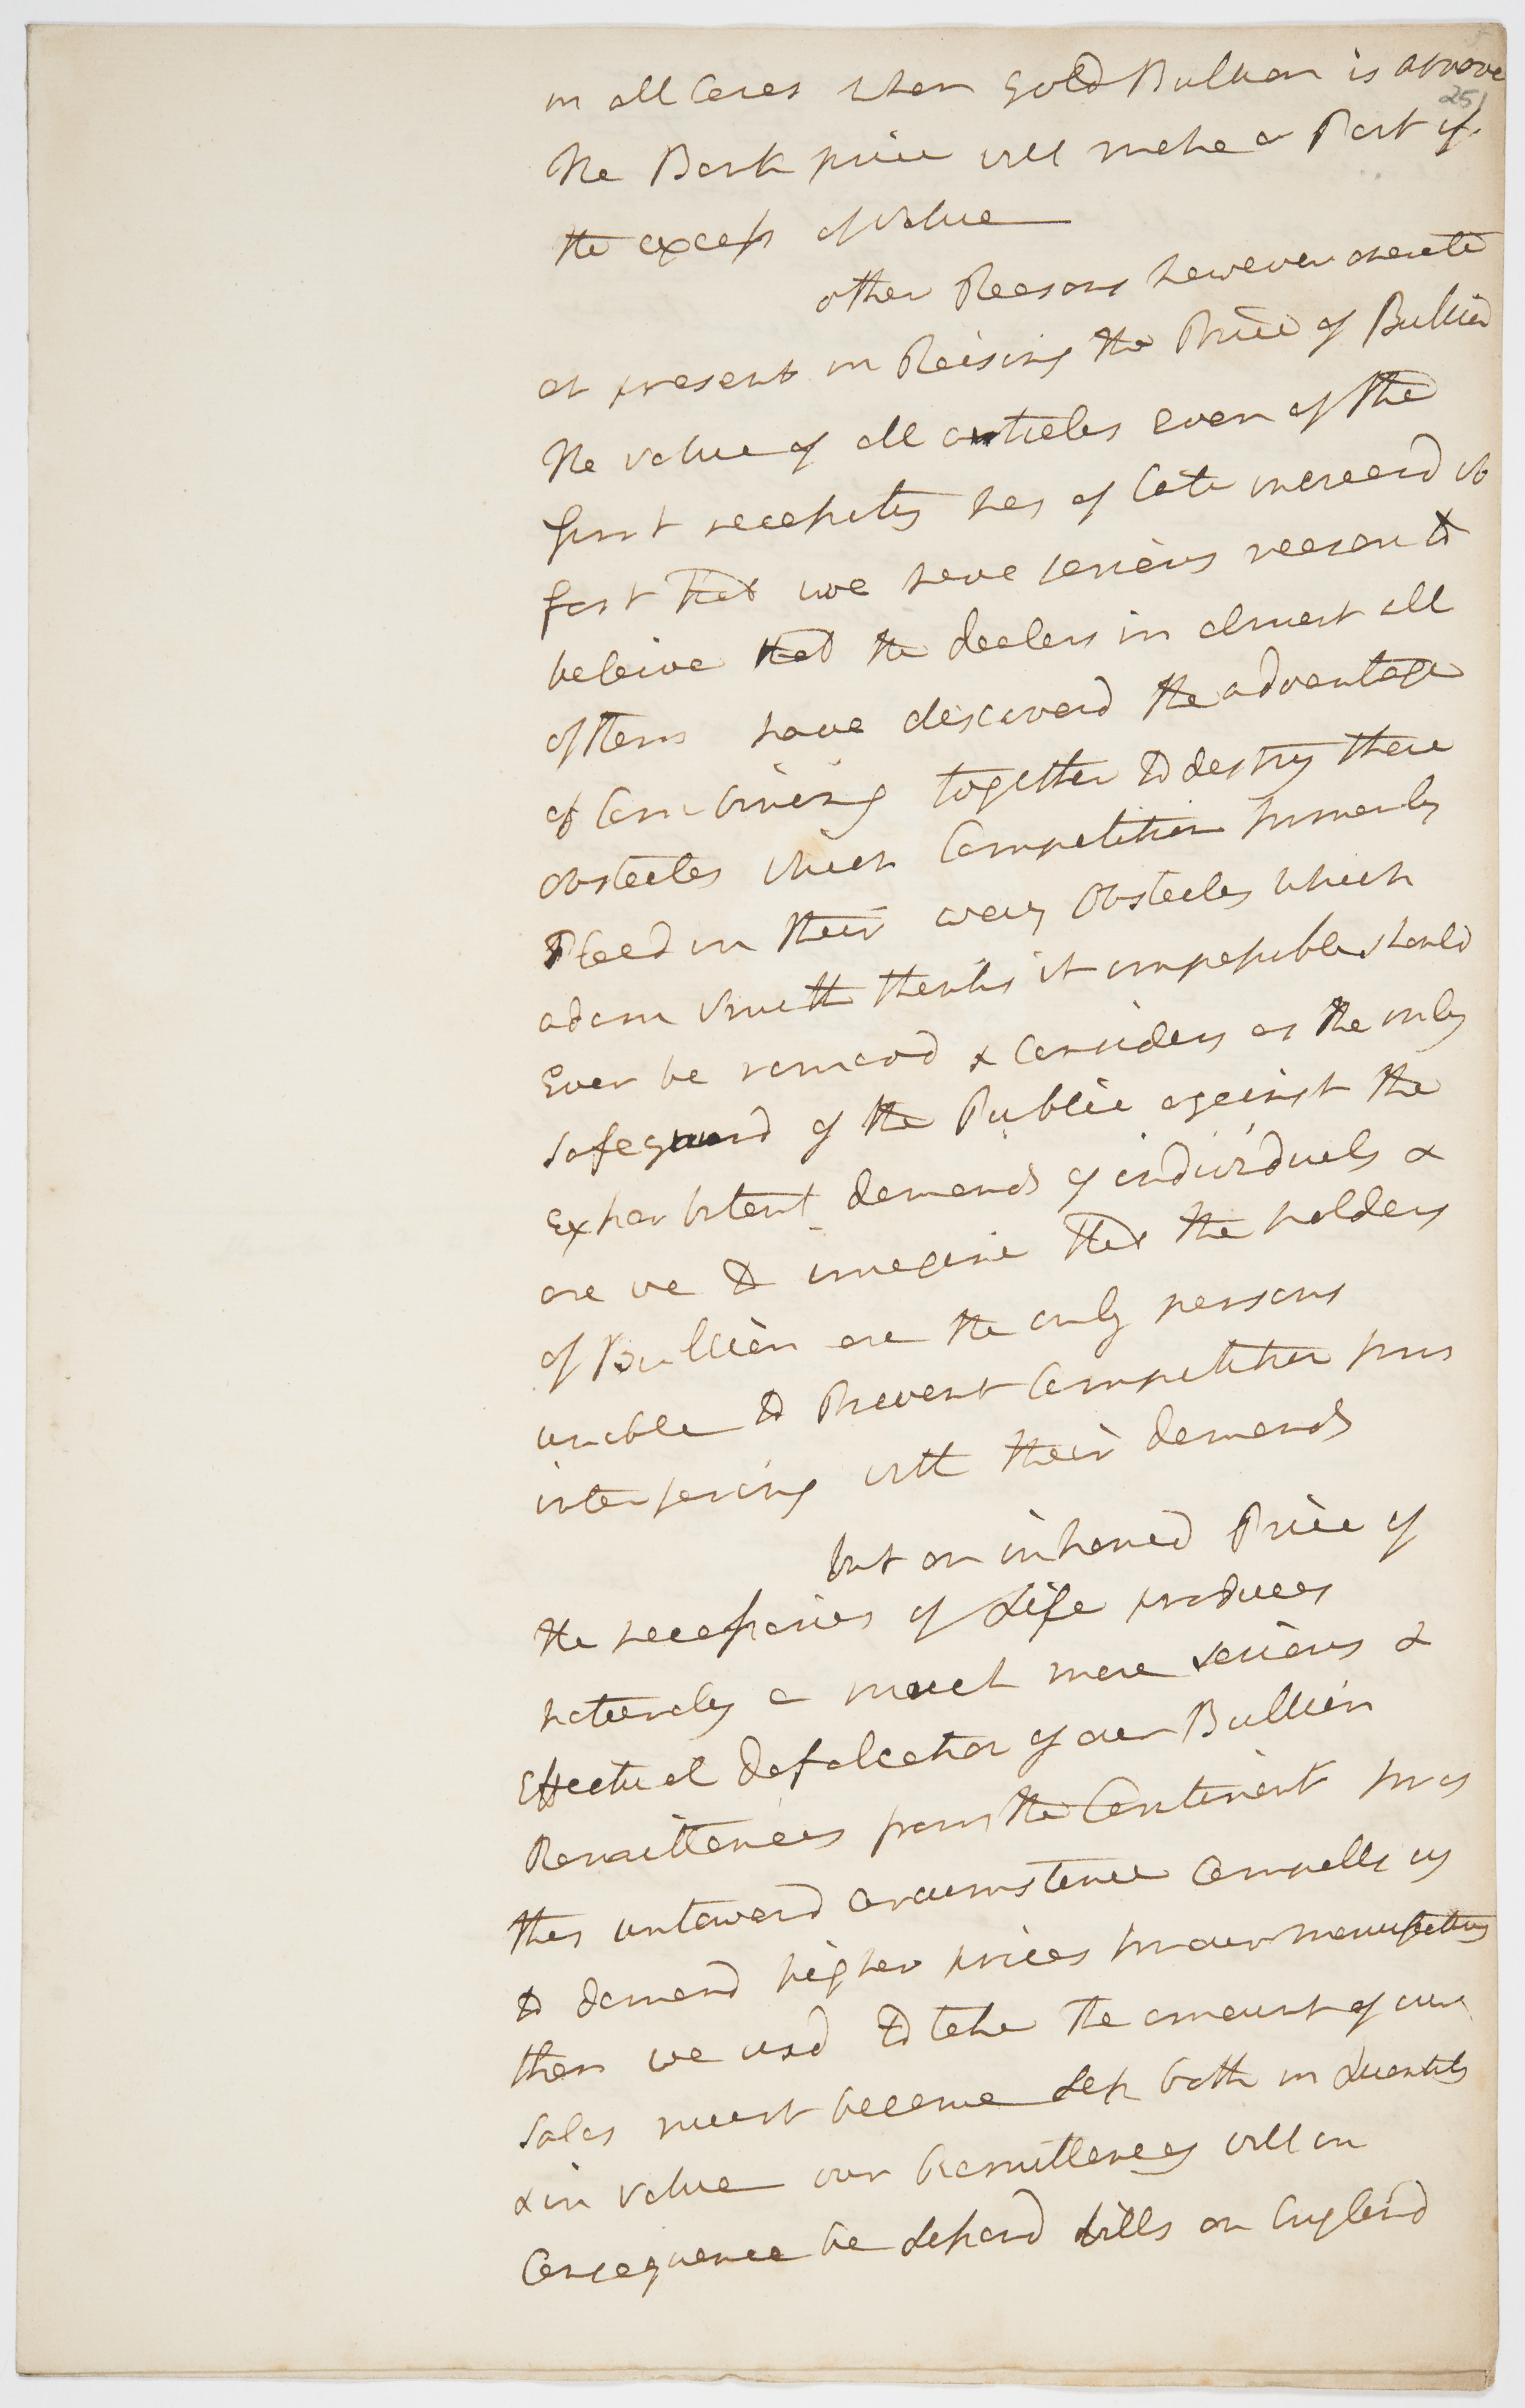 in all Cases when Gold Bullion is above
25
the Bank price will make a Part of
the excess of value
other Reasons however operate
at present in Raising the Price of Bullion
the value of all articles even of the
first necessity has of late increasd so
fast that we have serious reason to
beleive that the dealers in almost all
of them have discoverd the advantage
of Combining together to destroy these
obstacles which Competition formerly
Placd in their way Obstacles which
adam Smith thinks it impossible should
Ever be removd & Considers as the only
safeguard of the Public against the
Exhorbitant demands of individuals &
are we to imagine that the holders
of Bullion are the only persons
unable to Prevent Competition from
interfering with their demands
but an inhancd Price of
the necessaries of Life produces
naturaly a much more serious &
Effectual defalcation of our Bullion
Remittances from the Continent for as
this untoward circumstance Compells us
to demand higher prices for our manufactures
then we usd to take the amount of our
Sales must become less both in Quantity
& in value our Remittances will in
Consequence be lessend bills on England